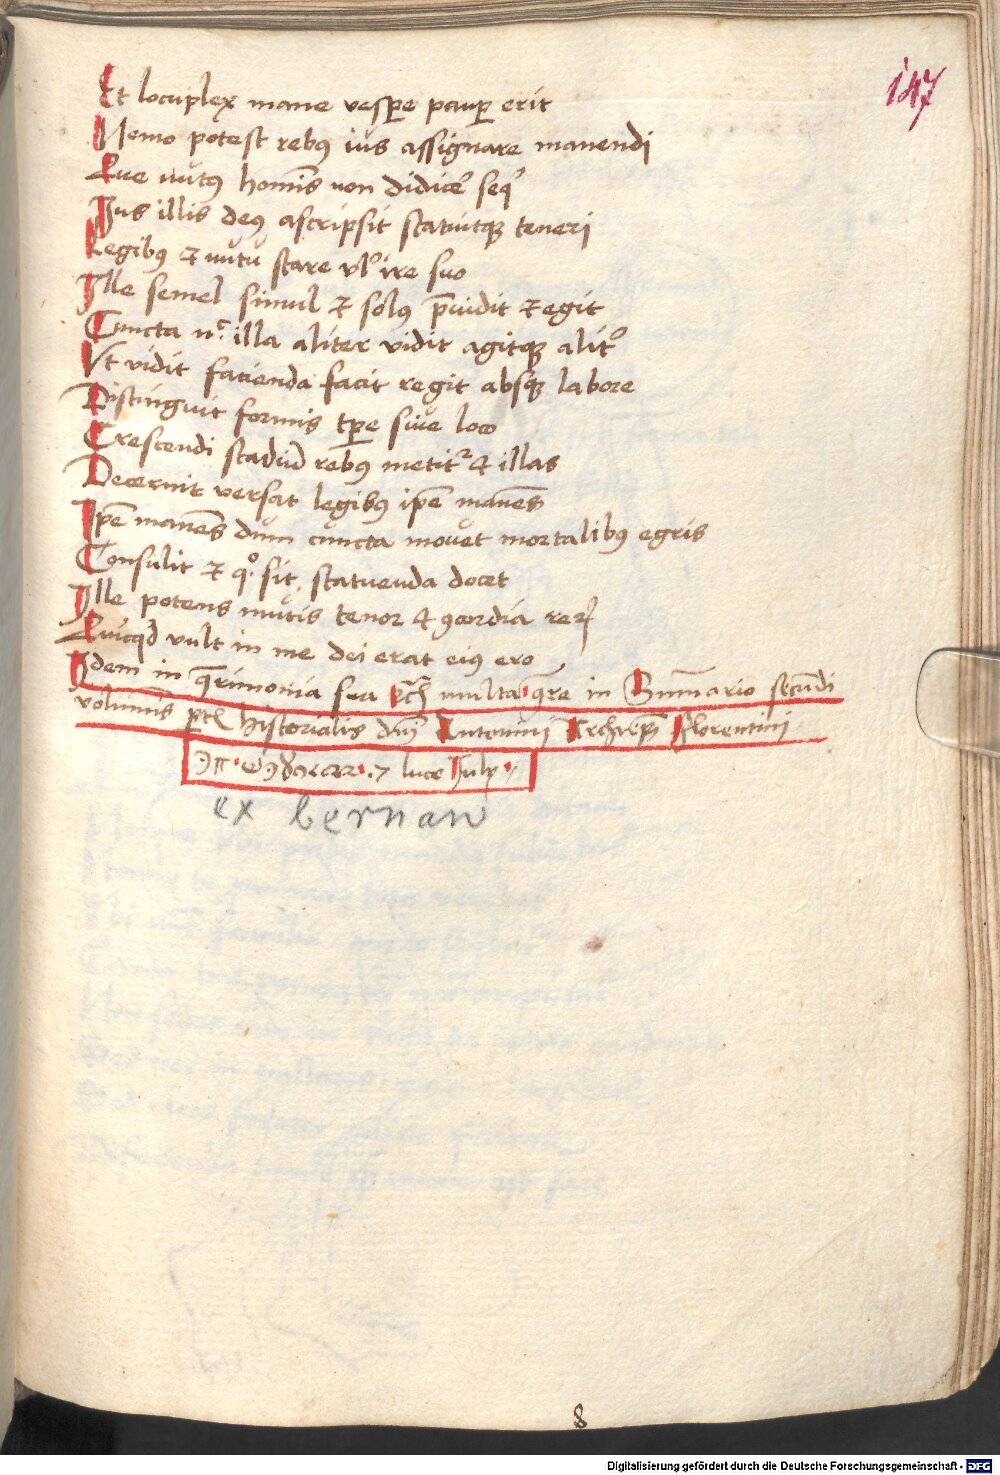 147
Et locuplex mane vespe paup erit
Nemo potest rebus ius assignare manendi
Que nutus hominis non didicere sequi
Jus illis deus ascripsit statuitque teneri
Legibus et nutu stare vel ire suo
Ille semel simul et solus preuidit et egit
Cuncta nec illa aliter vidit agitque aliter
Vt vidit facienda facit regit absque labore
Distinguit formis tpe sive loco
Crescendi stadium rebus metitur et illas
Decernit versat legibus ipse manens
Ipse manens dum cuncta movet mortalibus egris
Consulit et quo sit statuenda docet
Ille potens mutis tenor et concordia rerum
Quicquid vult in me dei erat eius ero
Idem in querimonia sua multa quere in Summario secundi
voluminis historialis dni Antonini Archiepi Florentini
luce Julij
ex bernan
8
Digitalisierung gefördert durch die Deutsche Forschungsgemeinschaft - DFG